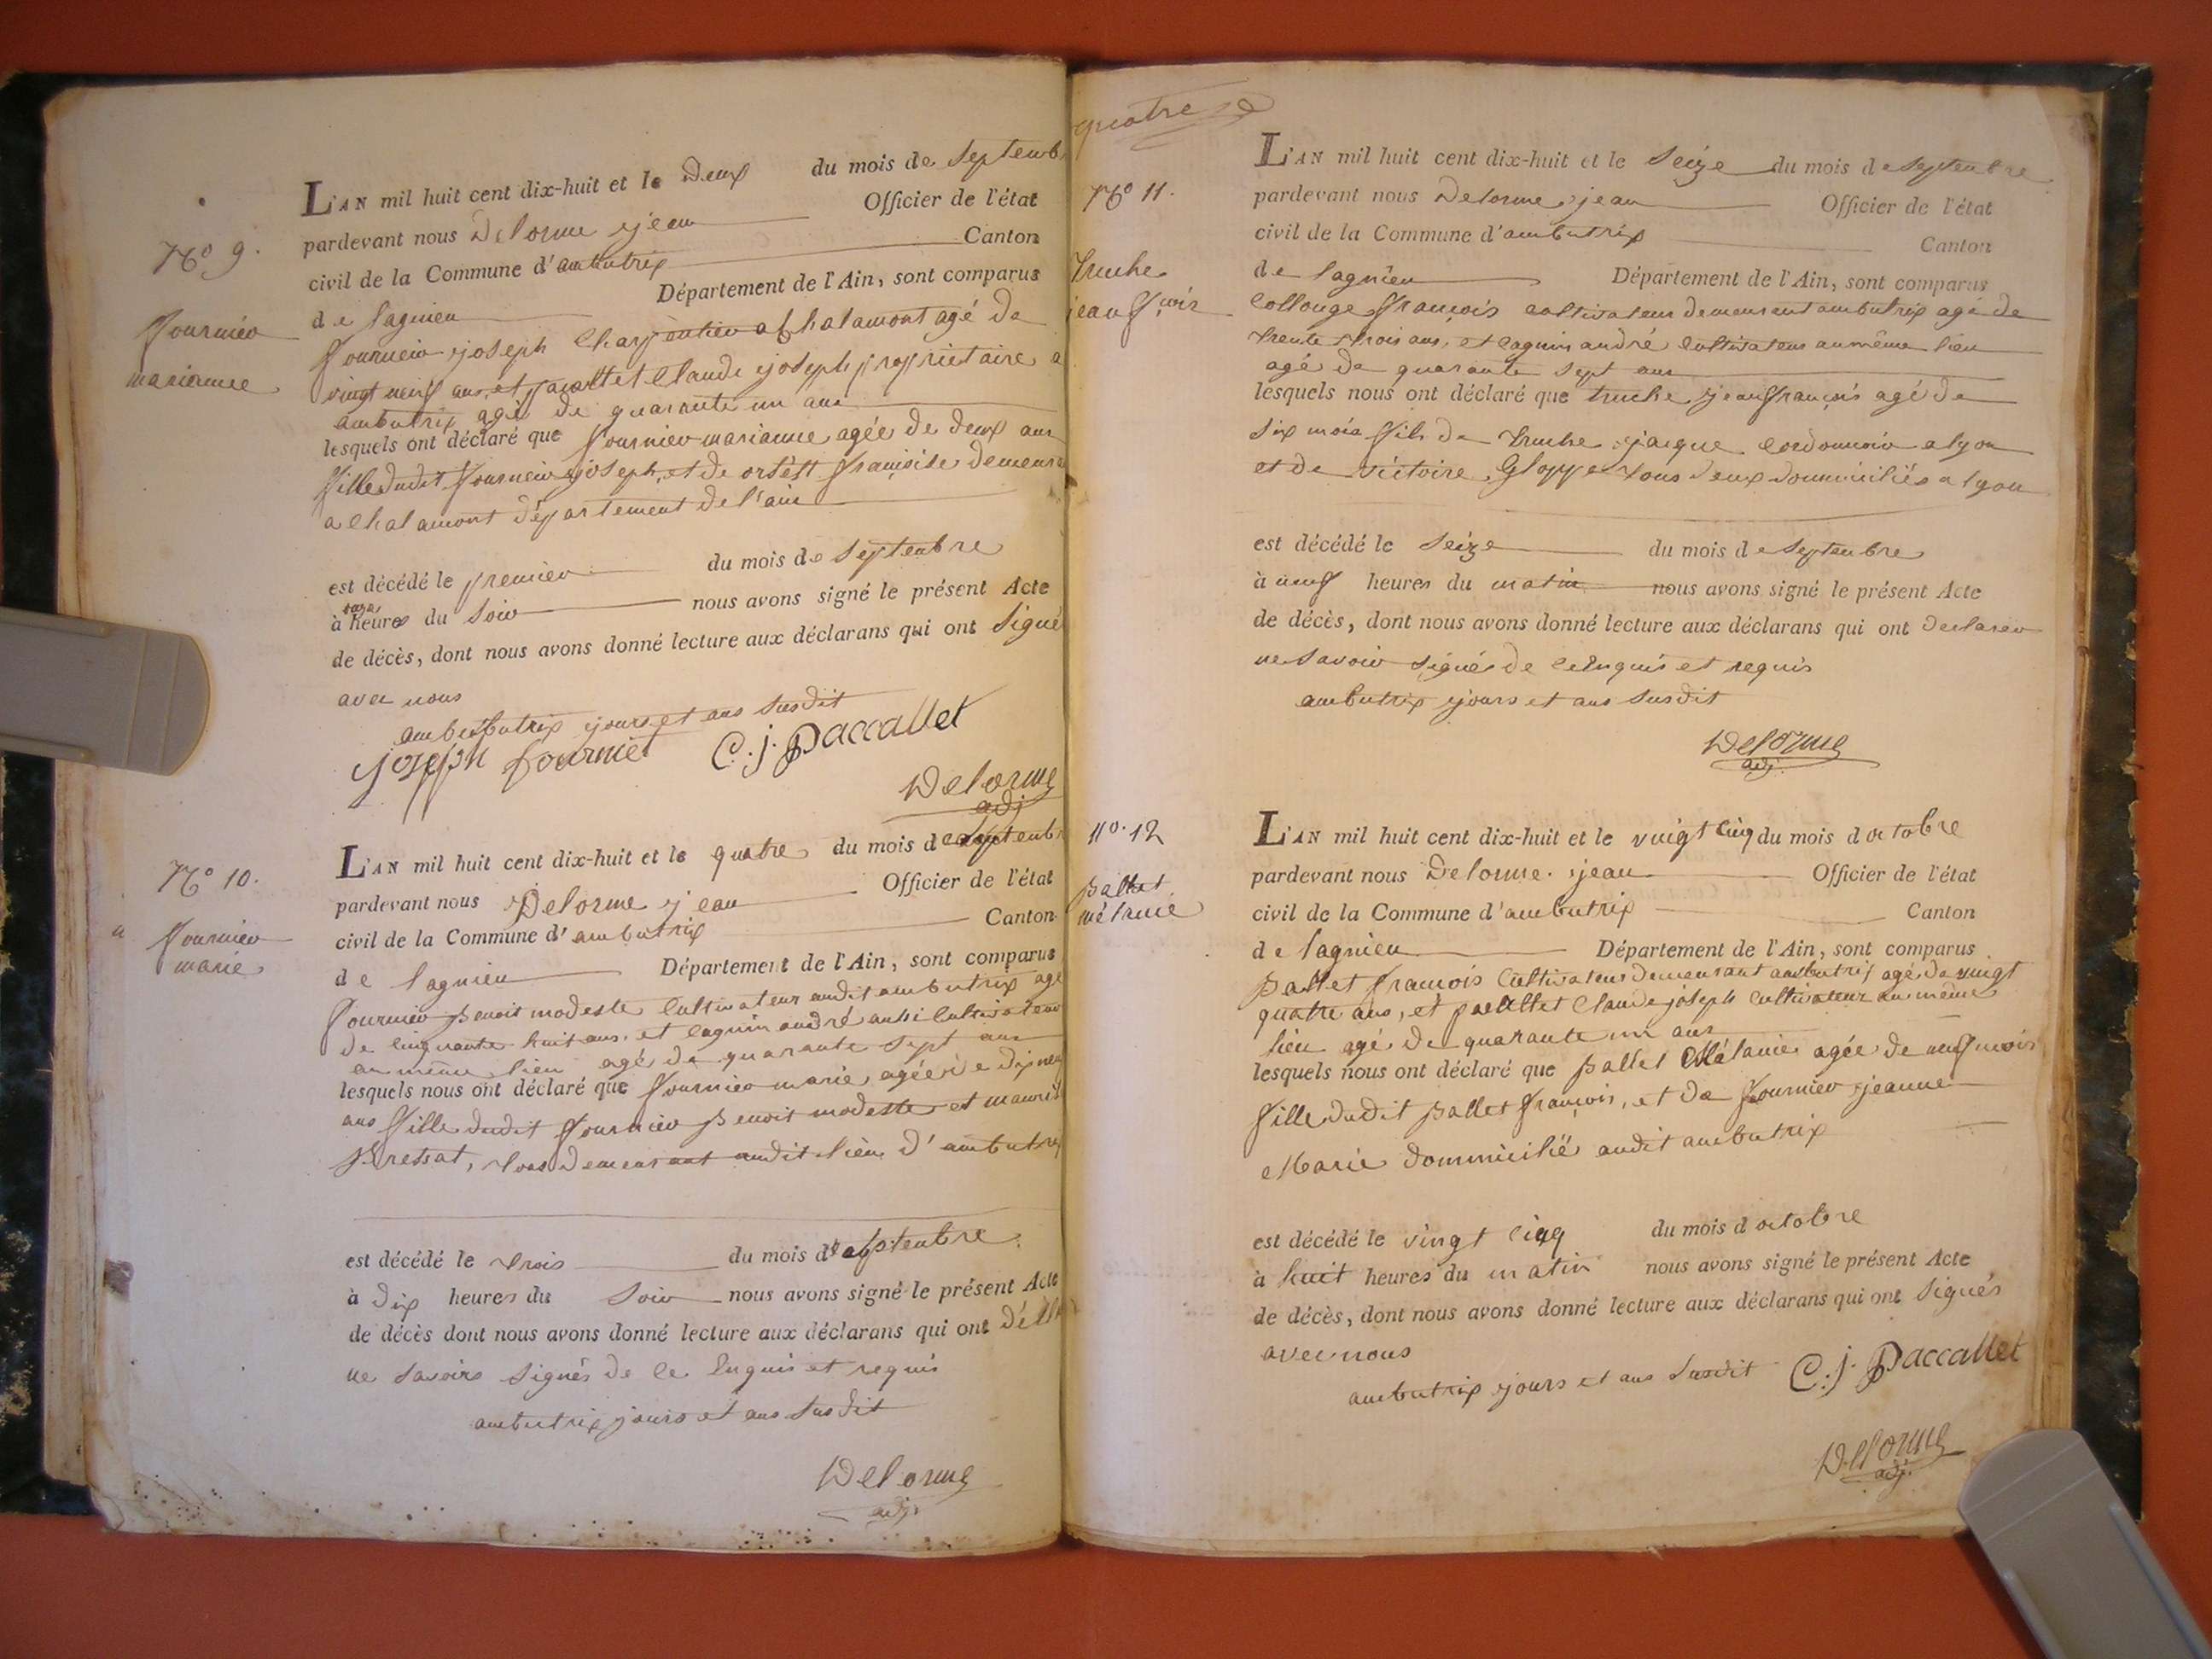 L'AN mil huit cent dix-huit et le deux du mois de septemb
N° 9.
pardevant nous Delorme jean Officier de l'état
civil de la Commune d'ambutrix Canton
de lagnieu Département de l'Ain, sont comparus
fournier
marianne
fournier joseph Charpentier a Chalamont agé de
vingt neuf ans, et paccallet Claude joseph proprietaire a
ambutrix agé de quarante un ans
lesquels ont déclaré que fournier marianne agée de deux ans
fille dudit fournier joseph, et de françoise demeura
a Chalamont département de l'ain
est décédé le premier du mois de septembre
à heures du soir nous avons signé le présent Acte
de décès, dont nous avons donné lecture aux déclarans qui ont signé
avec nous
ambutrix jours et ans susdit
joseph fournier C. j. Paccallet
Delorme
adj
L'AN mil huit cent dix-huit et le quatre du mois de septemb
N° 10.
pardevant nous Delorme jean Officier de l'état
civil de la Commune d'ambutrix Canton
de lagnieu Département de l'Ain, sont comparus
fournier
marie
fournier Benoit modeste Cultivateur audit ambutrix agé
de cinquante huit ans, et Cagnin andré aussi Cultivateur
au même lieu agé de quarante sept ans
lesquels nous ont déclaré que fournier marie, agée de dix neuf
ans fille dudit fournier Benoit modeste et
Bressat, tous demeurant audit lieu d'ambutrix
est décédé le trois du mois de septembre
à dix heures du soir nous avons signé le présent Acte
de décès dont nous avons donné lecture aux déclarans qui ont
ne savoire signés de ce Enquis et requis
ambutrix jours et ans susdit
Delorme
adj.
quatre
L'AN mil huit cent dix-huit et le seize du mois de septembre
N° 11.
pardevant nous Delorme jean Officier de l'état
civil de la Commune d'ambutrix Canton
de lagnieu Département de l'Ain, sont comparus
truche
jean fçois
Collonge françois cultivateur demeurant ambutrix agé de
trente trois ans, et Cagnin andré Cultivateur au même lieu
agé de quarante sept ans
lesquels nous ont déclaré que truche jean françois agé de
six mois fils de truche jacque Cordonnier a lyon
et de victoire Gloppe tous deux dommiciliés a lyon
est décédé le seize du mois de septembre
à neuf heures du matin nous avons signé le présent Acte
de décès, dont nous avons donné lecture aux déclarans qui ont declarer
ne savoir signés de ce Enquis et requis
ambutrix jours et ans susdit
Delorme
adj.
L'AN mil huit cent dix-huit et le vingt cinq du mois d octobre
n°. 12
pardevant nous Delorme jean Officier de l'état
civil de la Commune d'ambutrix Canton
de lagnieu Département de l'Ain, sont comparus
Ballet
mélanie
Ballet françois Cultivateur demeurant ambutrix agé de vingt
quatre ans, et paccallet Claude joseph Cultivateur au même
lieu agé de quarante un ans
lesquels nous ont déclaré que Ballet Mélanie agée de neuf mois
fille dudit Ballet françois, et de fournier jeanne
Marie dommicilié audit ambutrix
est décédé le vingt cinq du mois d octobre
à huit heures du matin nous avons signé le présent Acte
de décès, dont nous avons donné lecture aux déclarans qui ont signés
avec nous
ambutrix jours et ans susdit C. j. Paccallet
Delorme
adj.